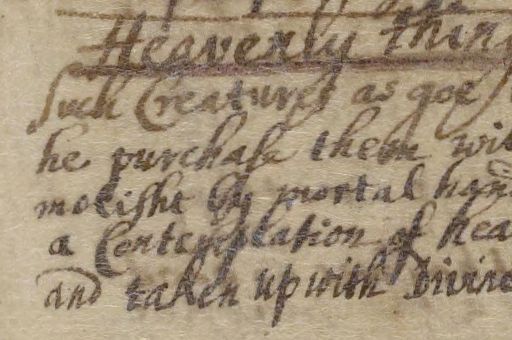 Heavenly thin
such Creatures as goe
he purchase them wi
molisht by mortal han
a Contemplation of hea
and taken up with Divine